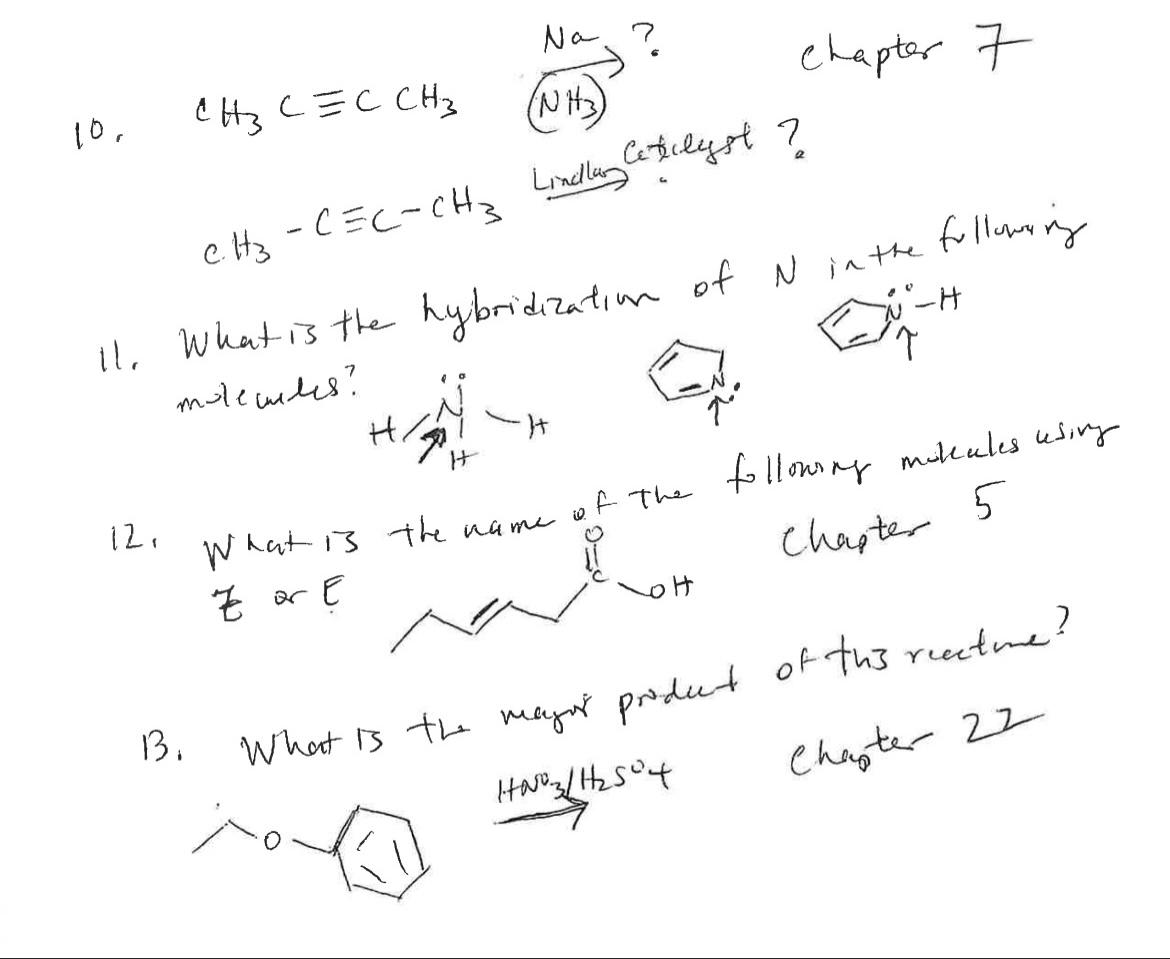 Na ?
10. CH3 C≡C CH3 (NH3) Chapter 7
CH3 - C≡C - CH3 Lindlar Catalyst ?
11. What is the hybridization of N in the following
molecules?
H N H H N N-H
12. What is the name of the following molecules using
Z or E Chapter 5
O
C OH
13. What is the major product of this reaction?
HNO3/H2SO4 Chapter 22
O